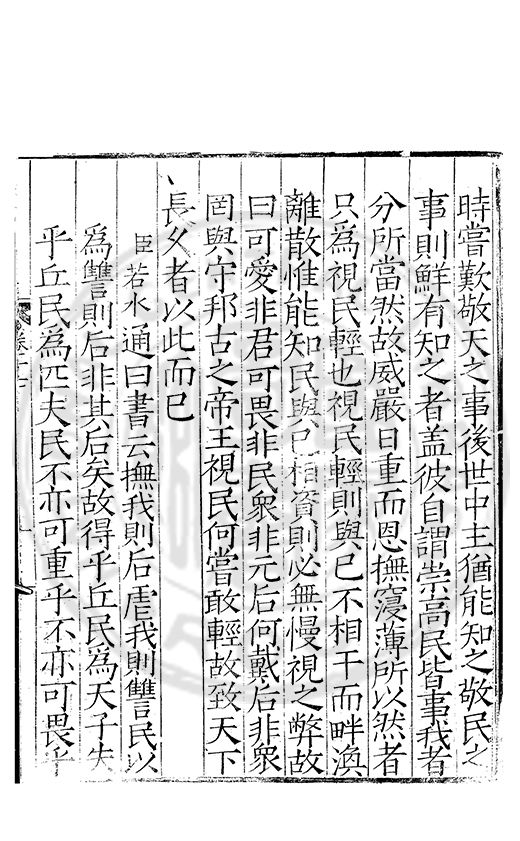 時嘗歎敬天之事後世中主猶能知之敬民之
事則鮮有知之者盖彼自謂崇高民皆事我者
分所當然故威嚴日重而恩撫寖薄所以然者
只為視民輕也視民輕則與已不相干而畔渙
離散惟能知民與已相資則必無慢視之弊故
曰可愛非君可畏非民衆非元后何戴后非衆
罔與守邦古之帝王視民何嘗敢輕故致天下
長久者以此而已
臣若水通曰書云撫我則后虐我則讐民以
為讐則后非其后矣故得乎丘民為天子失
乎丘民為匹夫民不亦可重乎不亦可畏乎